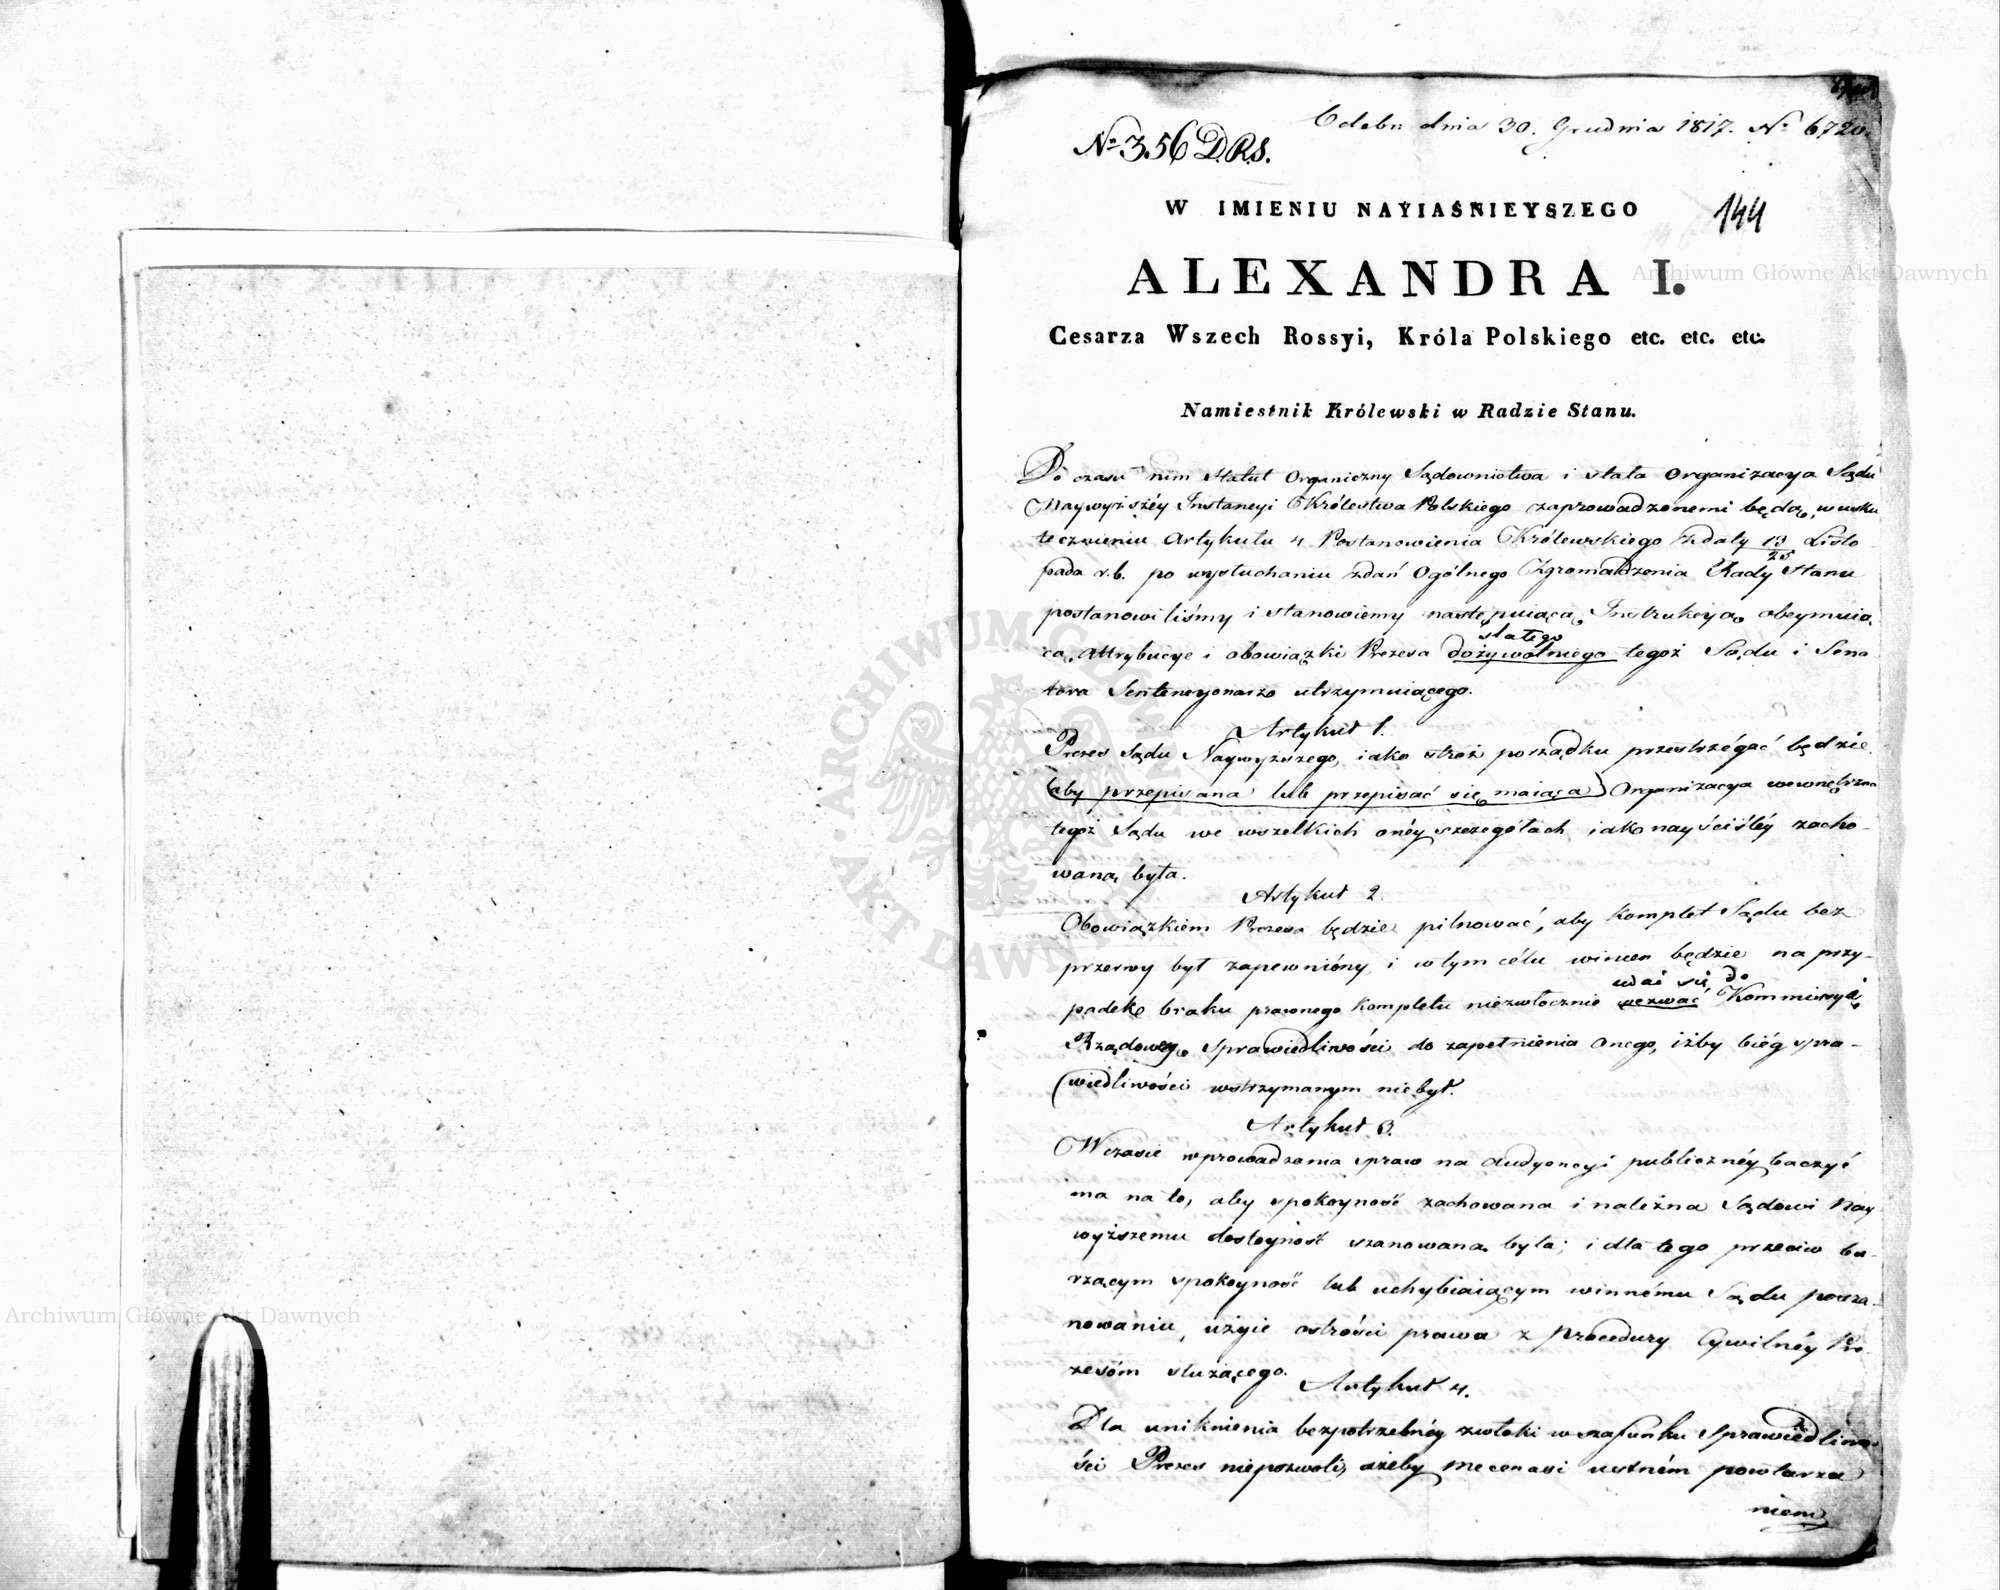 Odebr dnia 30. Grudnia 1817. Nº 6720.
Nº 356 D.R.S.
W IMIENIU NAYIAŚNIEYSZEGO
144
ALEXANDRA I.
Cesarza Wszech Rossyi, Króla Polskiego etc. etc. etc.
Namiestnik Królewski w Radzie Stanu.
Do czasu nim Statut Organiczny Sądownictwa i stała Organizacya Sądu
Naywyższéy Instancyi Królestwa Polskiego zaprowadzonemi będą, w usku
tecznieniu Artykułu 4 Postanowienia Królewskiego z daty 13/25 Listo
pada r.b. po wysłuchaniu zdań Ogólnego Zgromadzenia Rady Stanu
postanowiliśmy i stanowiemy następuiącą Instrukcyą obeymuią
stałego
cą Attrybucye i obowiązki Prezesa dożywotniego tegoż Sądu i Sena
tora Sentencyonarza utrzymuiącego.
Artykuł 1.
Prezes Sądu Naywyższego, iako stróż porządku przestrzégać będzie
(aby przepisana lub przepisać się maiąca) Organizacya wewnętrzna
tegoż Sądu we wszelkich onéy szczegółach iak nayściśléy zacho-
waną była.
Artykuł 2.
Obowiązkiem Prezesa będzie pilnować, aby Komplet Sądu bez
przerwy był zapewniony, i w tym célu winien będzie na przy-
udać się do
padek braku prawnego Kompletu niezwłocznie wezwać Kommissyi
Rządowey Sprawiedliwości do zapełnienia onego, iżby biég spra-
wiedliwości wstrzymanym niebył.
Artykuł 3.
W czasie wprowadzania spraw na Audyencyi publicznéy baczyć
ma na to, aby spokoyność zachowana i należna Sądowi Nay
wyższemu dostoyność szanowaną była; i dla tego przeciw bu-
rzącym spokoyność lub uchybiaiącym winnému Sądu posza-
nowaniu, użyie ostrości prawa z procedury Cywilnéy Pre-
zesóm służącego.
Artykuł 4.
Dla uniknienia bezpotrzebnéy zwłoki w szafunku Sprawiedliwo-
ści Prezes niepozwoli, ażeby Mecenasi ustném powtarza
niem
Archiwum Główne Akt Dawnych
Archiwum Główne Akt Dawnych
ARCHIWUM GŁÓWNE AKT DAWNYCH